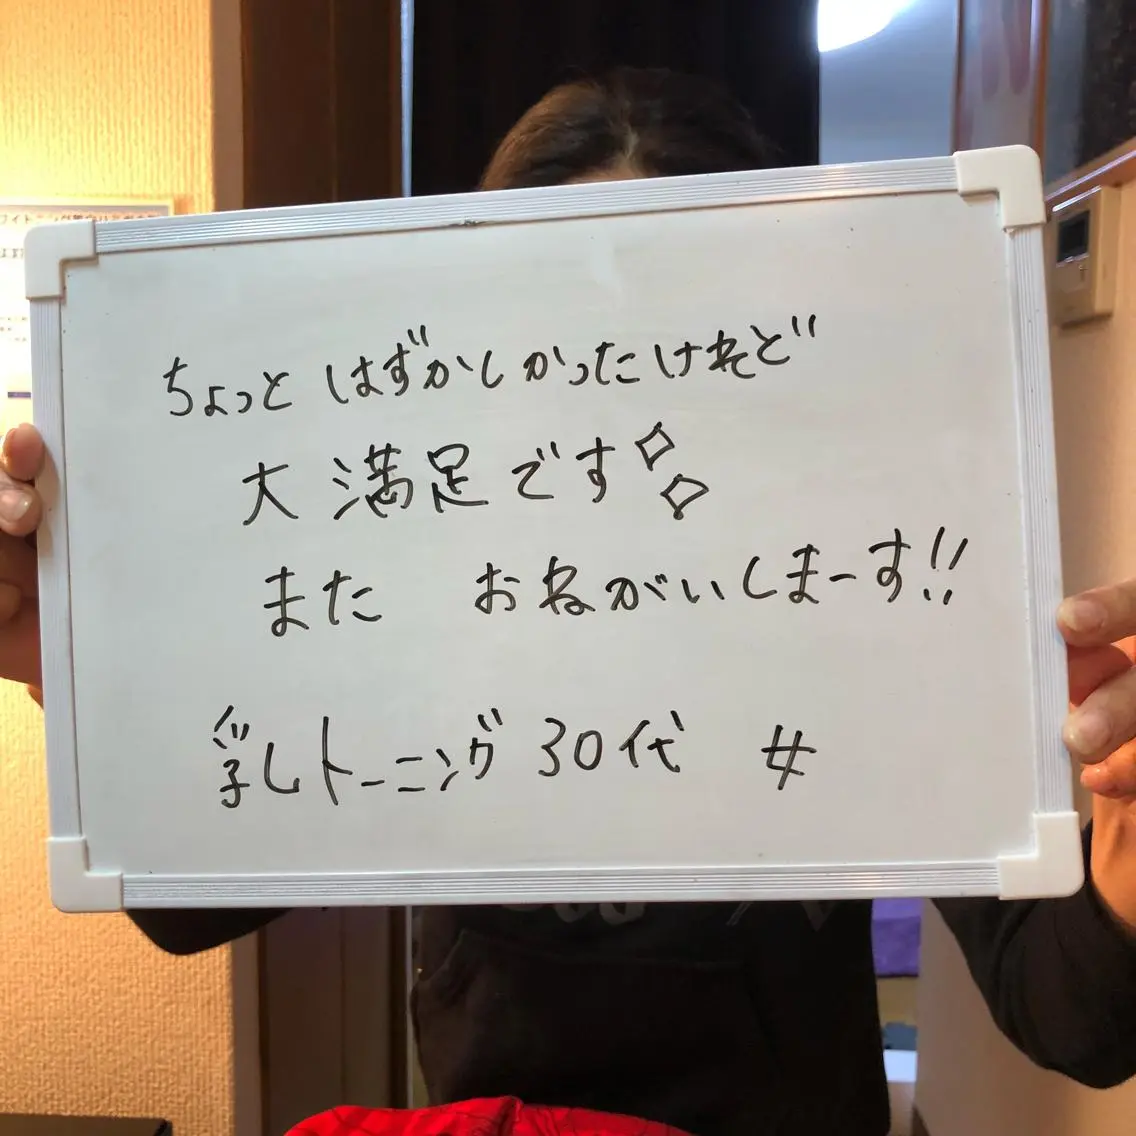 ちょっと はずかしかったけれど
大満足です
また おねがいしまーす!!
乳トーニング 30代 女